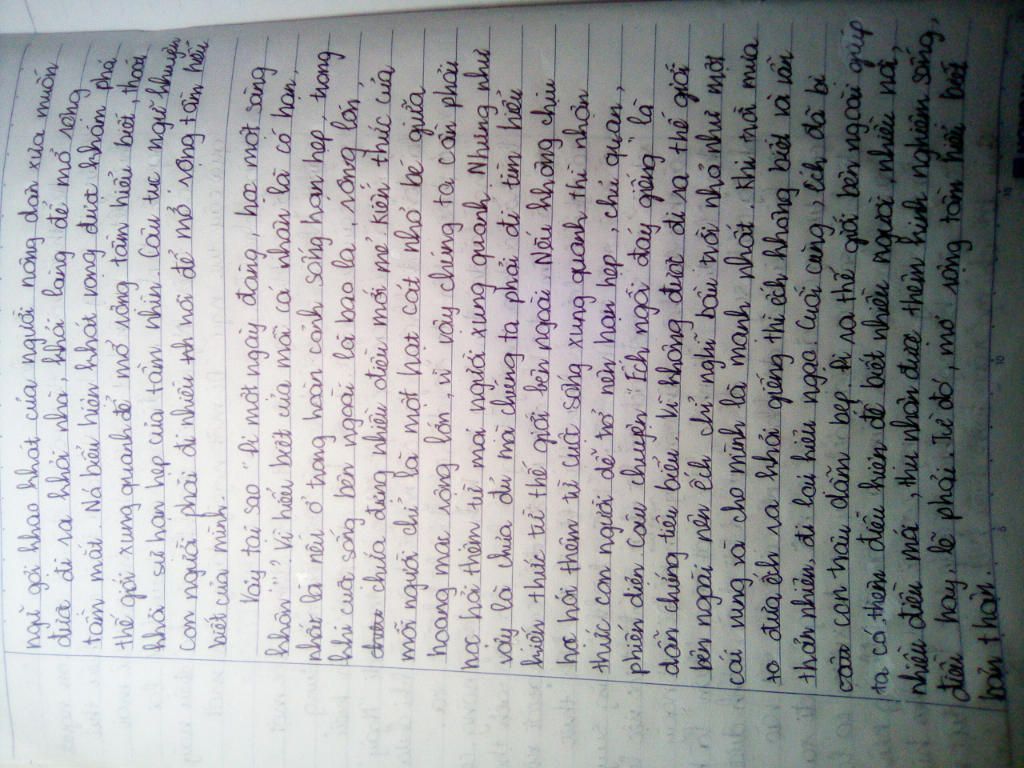 ngĩ gởi khao khát của người nông dân xưa muốn
được đi ra khỏi nhà, khỏi làng để mở rộng
tầm mắt. Nó biểu hiện khát vọng được khám phá
thế giới xung quanh để mở rộng tầm hiểu biết, thoát
khỏi sự hạn hẹp của tầm nhìn. Câu tục ngữ khuyên
con người phải đi nhiều nơi để mở rộng tầm hiểu
biết của mình.
Vậy tại sao "Đi một ngày đàng, học một sàng
khôn"? Vì hiểu biết của mỗi cá nhân là có hạn,
nhất là nếu ở trong hoàn cảnh sống hạn hẹp, trong
khi cuộc sống bên ngoài là bao la, rộng lớn,
chứa đựng nhiều điều mới mẻ. Kiến thức của
mỗi người chỉ là một hạt cát nhỏ bé giữa
hoang mạc rộng lớn, vì vậy chúng ta cần phải
học hỏi thêm từ mọi người xung quanh. Nhưng như
vậy là chưa đủ mà chúng ta phải đi tìm hiểu
kiến thức từ thế giới bên ngoài. Nếu không chịu
học hỏi thêm từ cuộc sống xung quanh thì nhận
thức con người dễ trở nên hạn hẹp, chủ quan,
phiến diện. Câu chuyện "Ếch ngồi đáy giếng" là
dẫn chứng tiêu biểu. Vì không được đi ra thế giới
bên ngoài nên ếch chỉ nghĩ bầu trời nhỏ như một
cái vung và cho mình là mạnh nhất. Khi trời mưa
to đưa ếch ra khỏi giếng thì ếch không biết và vẫn
thản nhiên đi lại hiêu ngạo. Cuối cùng, ếch đã bị
con trâu dẫm bẹp. Đi ra thế giới bên ngoài giúp
ta có thêm điều kiện để biết nhiều người, nhiều nơi,
nhiều điều mới, thu nhận được thêm kinh nghiệm sống,
điều hay, lẽ phải. Từ đó, mở rộng tầm hiểu biết
bản thân.